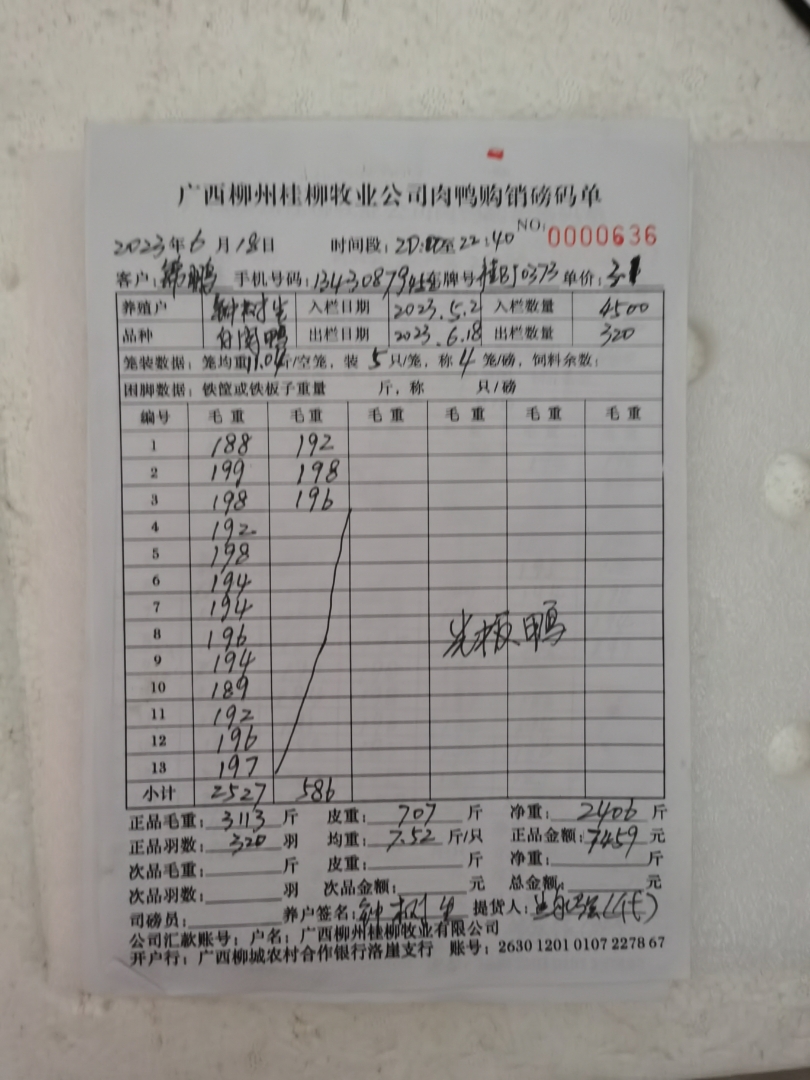 广西柳州桂柳牧业公司肉鸭购销磅码单
NO: 0000636
2023年6月18日 时间段: 20:00至22:40
客户: 鹏 手机号码: 134308794 车牌号 桂BJ0373 单价: 3.1
养殖户 钟树生 入栏日期 2023.5.2 入栏数量 4500
品种 白肉鸭 出栏日期 2023.6.18 出栏数量 320
笼装数据: 笼均重11.04斤/空笼, 装 5 只/笼, 称 4 笼/磅, 饲料余数:
困脚数据: 铁筐或铁板子重量 斤, 称 只/磅
编号 毛重 毛重 毛重 毛重 毛重 毛重
1 188 192
2 199 198
3 198 196
4 192
5 198
6 194
7 194
8 196
9 194
10 189
11 192
12 196
13 197
光板鸭
小计 2527 586
正品毛重: 3113 斤 皮重: 707 斤 净重: 2406 斤
正品羽数: 320 羽 均重: 7.52 斤/只 正品金额: 7459 元
次品毛重: 斤 皮重: 斤 净重: 斤
次品羽数: 羽 次品金额: 元 总金额: 元
司磅员: 养户签名: 钟树生 提货人: (代)
公司汇款账号: 户名: 广西柳州桂柳牧业有限公司
开户行: 广西柳城农村合作银行洛崖支行 账号: 2630 1201 0107 2278 67